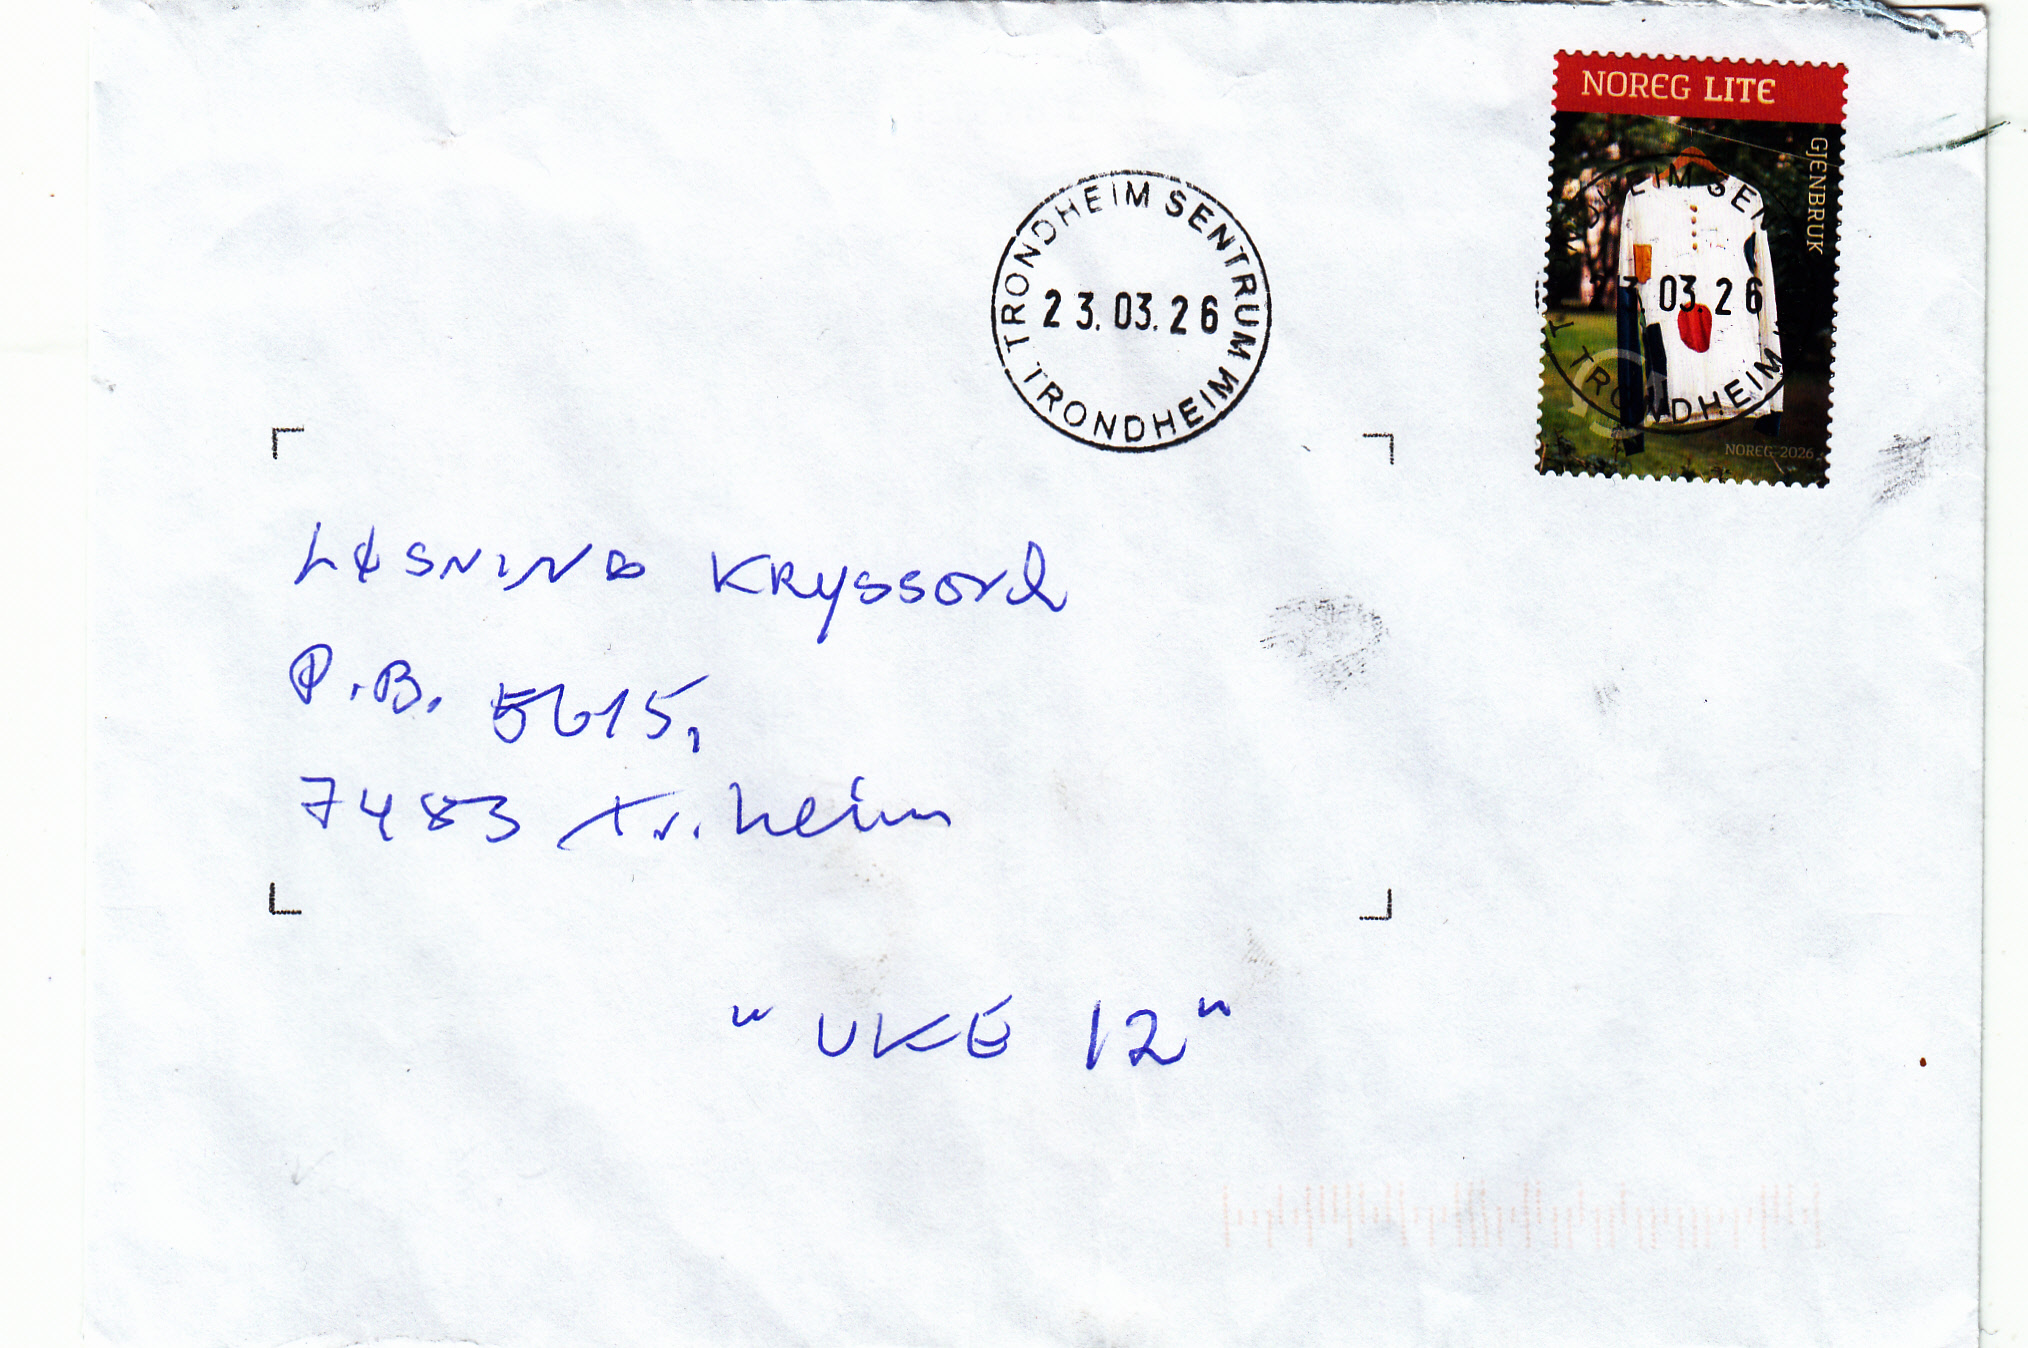 NOREG LITE
GJENBRUK
TRONDHEIM SENTRUM
23.03.26
TRONDHEIM
03.26
TRONDHEIM
NOREG 2026
LØSNING KRYSSORD
P.B. 5615,
7483 Tr.heim
"UKE 12"